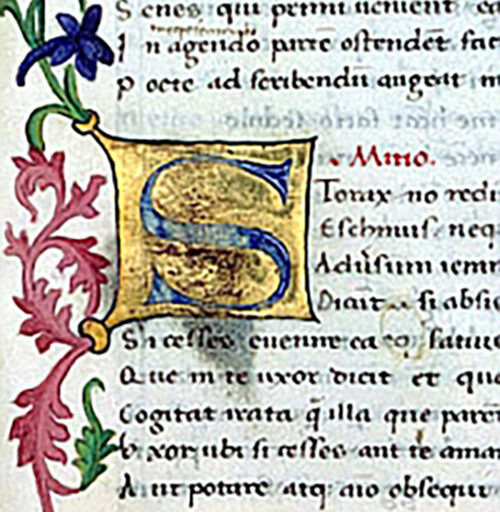 Senes qui primi uenient ea
In agendo parte ostendēt fat
Poete ad scribendū augeat in
Mitio.
S
Torax no redi
Eschinus neq
Adūsum ierun
Dicūt si absi
Si cesses euenire ea satiu
Que in te uxor dicit et que
Cogitat irata q̄ illa que paren
Vxor ubi si cesses aut te amar
Aut potare atq aio obsequi